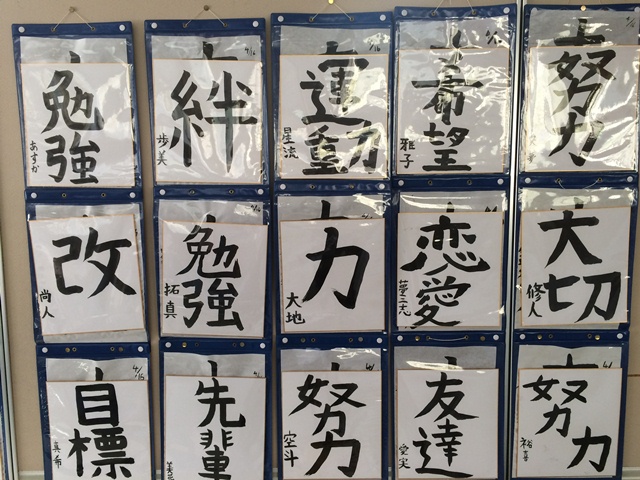 勉強
あすか
絆
歩美
運動
星流
希望
雅子
努力
改
尚人
勉強
拓真
力
大地
恋愛
大切
修人
目標
真希
先輩
努力
空斗
友達
愛実
努力
裕喜